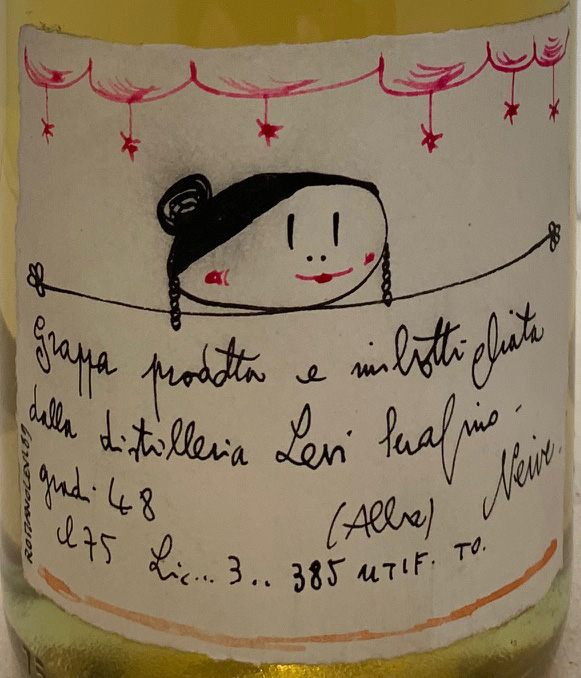 Grappa prodotta e imbottigliata
dalla distilleria Levi Serafino -
Neive.
gradi 48 (Alba)
cl 75 Lic... 3.. 385 UTIF. TO.
ROMANO LEVI 89